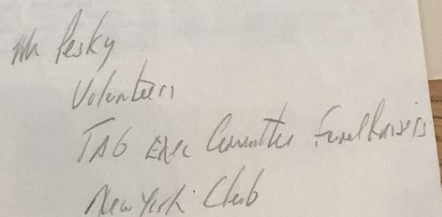 Mr Pesky
Volunteers
TAG Exec Committee Fundraisis
New York Club